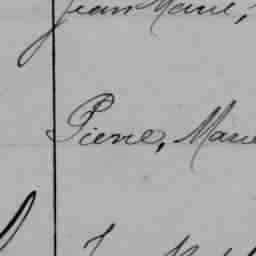 Jean Marie,
Pierre, Marie